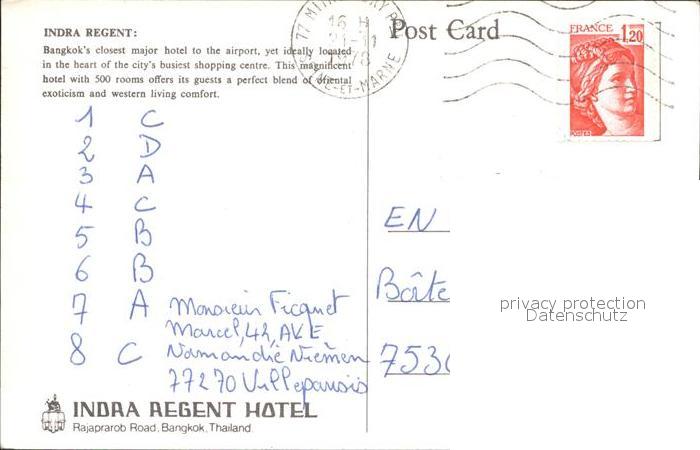 INDRA REGENT:
Bangkok's closest major hotel to the airport, yet ideally located
in the heart of the city's busiest shopping centre. This magnificent
hotel with 500 rooms offers its guests a perfect blend of oriental
exoticism and western living comfort.
1 C
2 D
3 A
4 C
5 B
6 B
7 A Monsieur Ficquet
Marcel, 42, AVE
8 C Normandie Niemen
77270 Villeparisis
INDRA REGENT HOTEL
Rajaprarob Road, Bangkok, Thailand.
Post Card
77 MITRY
16 H
1978
SEINE-ET-MARNE
FRANCE
1,20
POSTES
EN
Boîte
privacy protection
Datenschutz